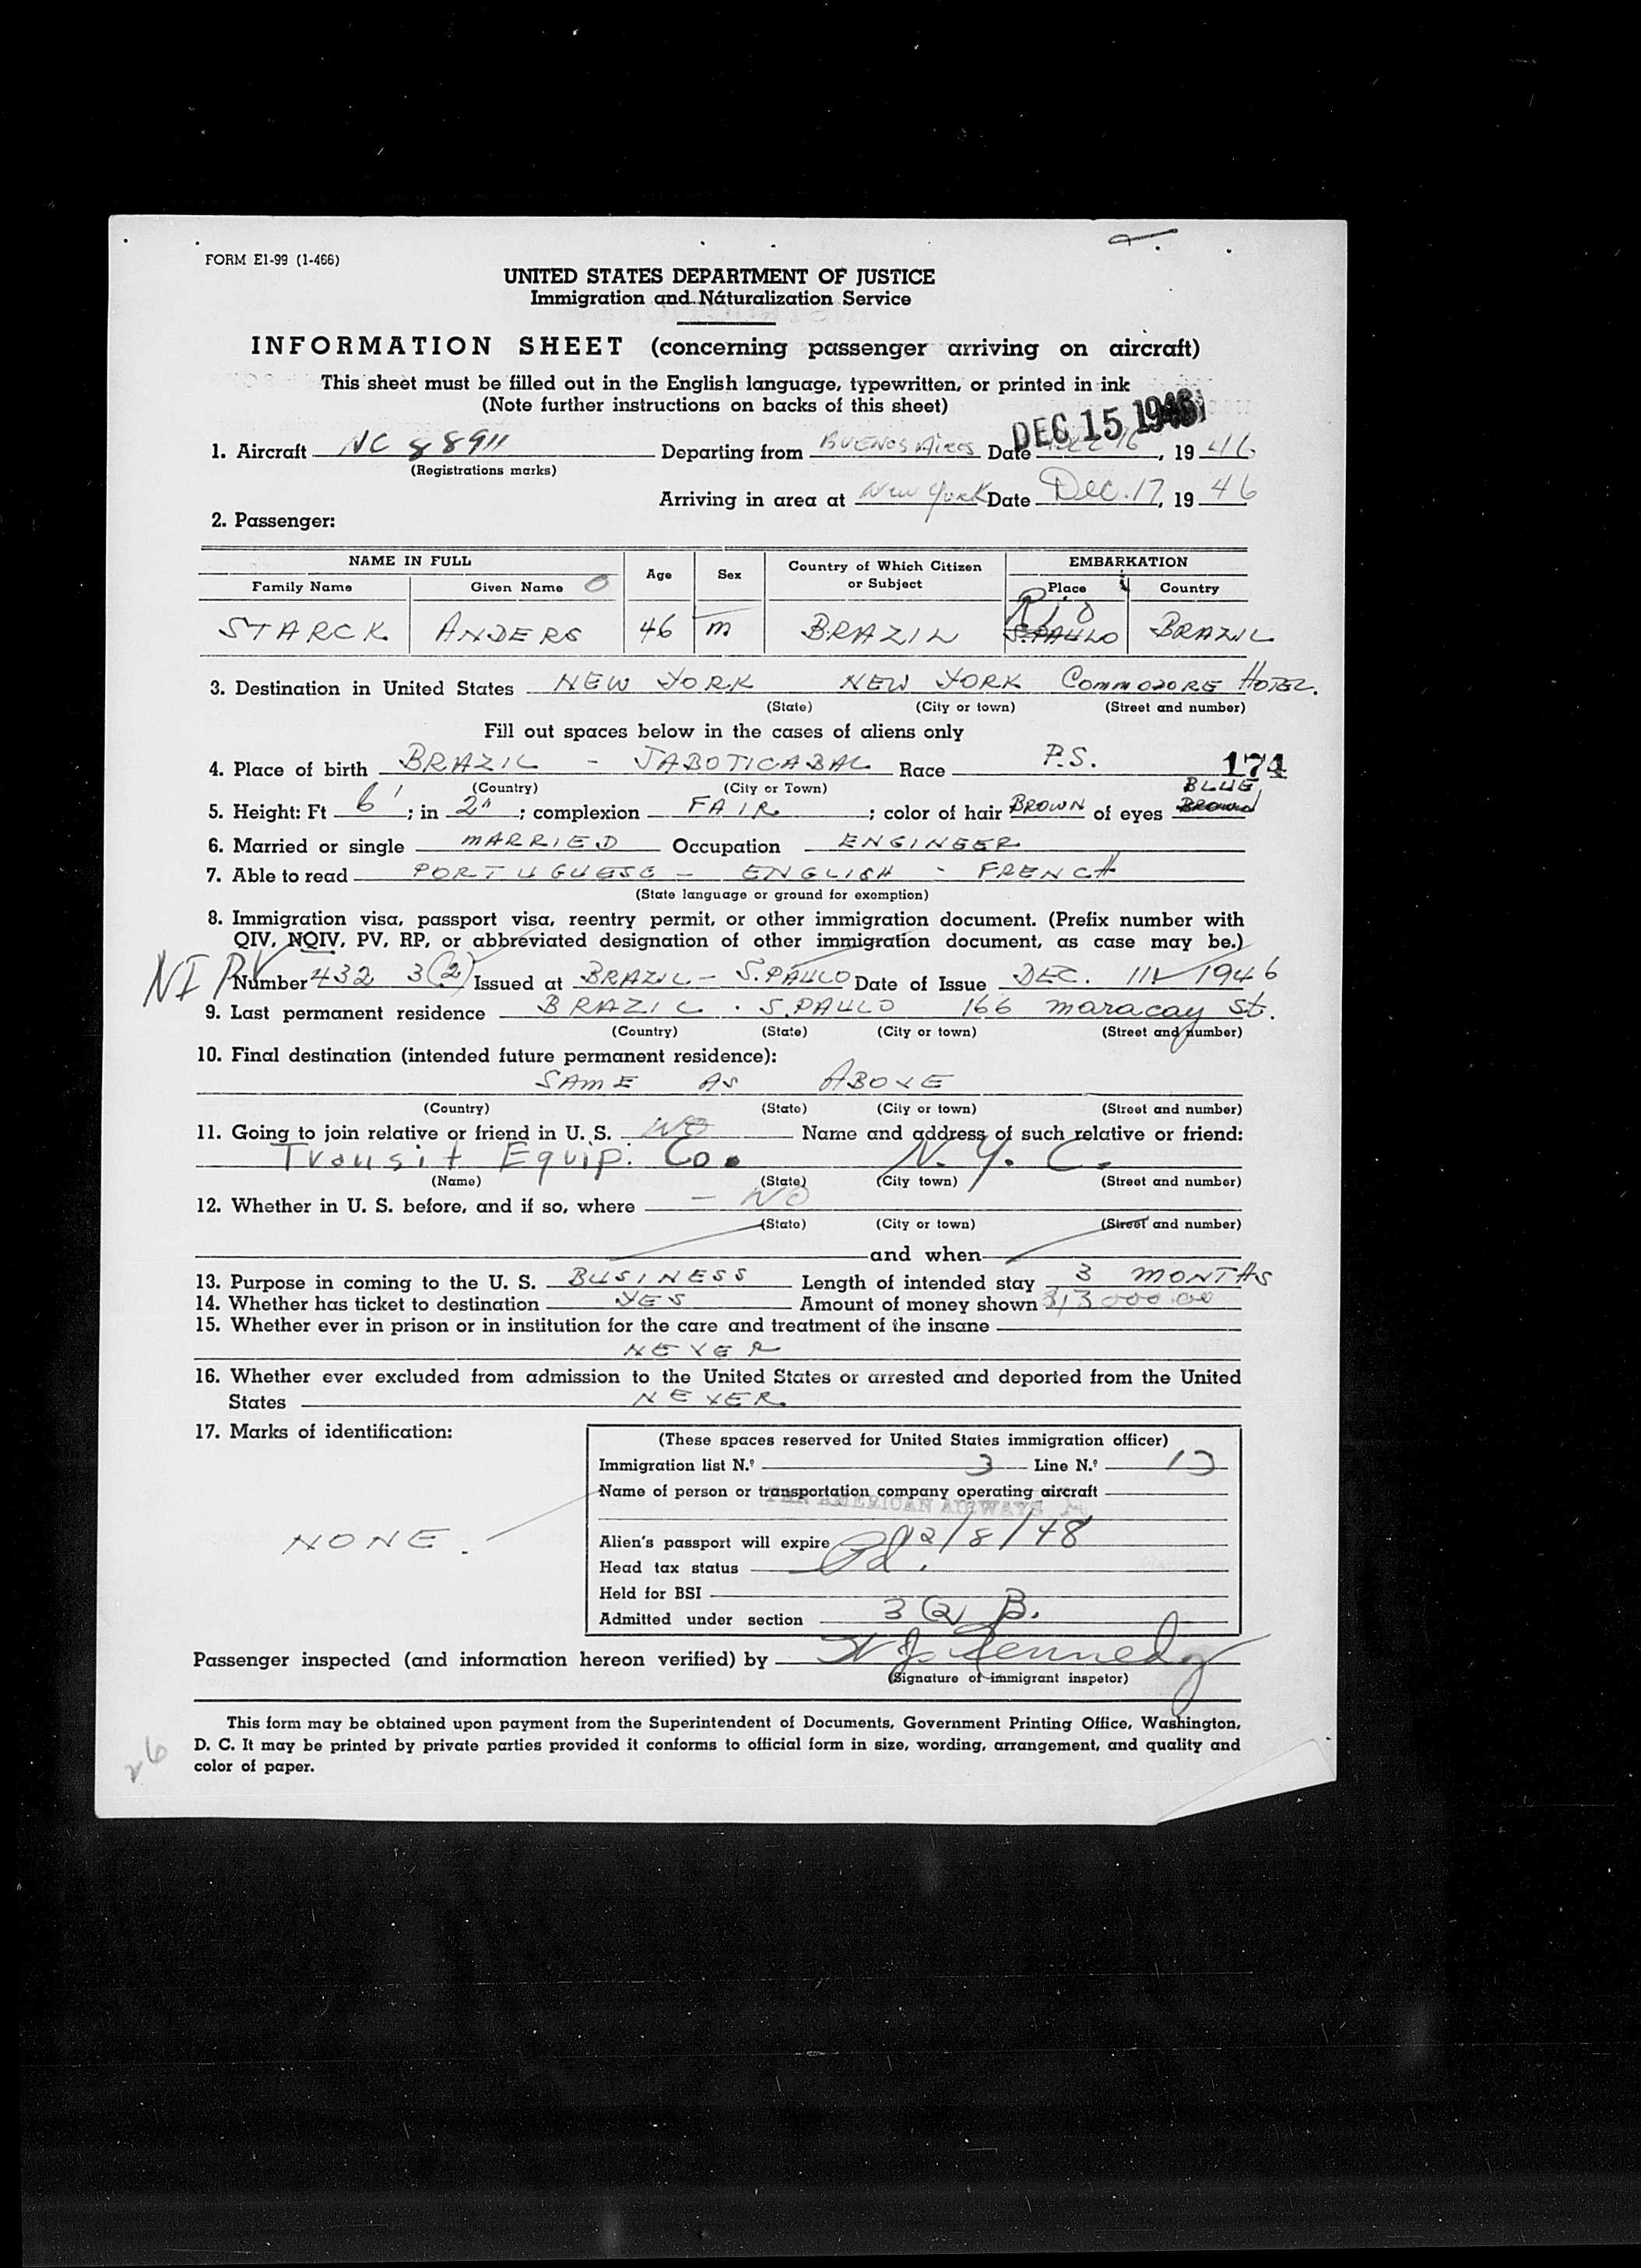 FORM E1-99 (1-466)
UNITED STATES DEPARTMENT OF JUSTICE
Immigration and Naturalization Service
INFORMATION SHEET (concerning passenger arriving on aircraft)
This sheet must be filled out in the English language, typewritten, or printed in ink
(Note further instructions on backs of this sheet)
DEC 15 1946
1. Aircraft NC 88911 Departing from BUENOS AIRES Date 16, 19 46
(Registrations marks)
Arriving in area at New York Date Dec. 17, 19 46
2. Passenger:
NAME IN FULL Age Sex Country of Which Citizen or Subject EMBARKATION
Family Name Given Name O Place Country
RIO
STARCK ANDERS 46 M BRAZIL S.PAULO BRAZIL
3. Destination in United States NEW YORK NEW YORK COMMODORE HOTEL.
(State) (City or town) (Street and number)
Fill out spaces below in the cases of aliens only
4. Place of birth BRAZIL - JABOTICABAL Race P.S. 174
(Country) (City or Town) BLUE
5. Height: Ft 6' ; in 2" ; complexion FAIR ; color of hair BROWN of eyes BROWN
6. Married or single MARRIED Occupation ENGINEER
7. Able to read PORTUGUESE - ENGLISH - FRENCH
(State language or ground for exemption)
8. Immigration visa, passport visa, reentry permit, or other immigration document. (Prefix number with
QIV, NQIV, PV, RP, or abbreviated designation of other immigration document, as case may be.)
Number 432 3(2) Issued at BRAZIL - S.PAULO Date of Issue DEC. 1946
9. Last permanent residence BRAZIL . S.PAULO 166 maracay St.
(Country) (State) (City or town) (Street and number)
10. Final destination (intended future permanent residence):
SAME AS ABOVE
(Country) (State) (City or town) (Street and number)
11. Going to join relative or friend in U. S. NO Name and address of such relative or friend:
Transit Equip. Co. N. Y. C.
(Name) (State) (City town) (Street and number)
12. Whether in U. S. before, and if so, where - NO
(State) (City or town) (Street and number)
and when
13. Purpose in coming to the U. S. BUSINESS Length of intended stay 3 MONTHS
14. Whether has ticket to destination YES Amount of money shown
15. Whether ever in prison or in institution for the care and treatment of the insane
NEVER
16. Whether ever excluded from admission to the United States or arrested and deported from the United
States NEVER
17. Marks of identification:
(These spaces reserved for United States immigration officer)
Immigration list N.º 3 Line N.º 13
Name of person or transportation company operating aircraft
PAN AMERICAN AIRWAYS
NONE.
Alien's passport will expire 12/8/48
Head tax status Pd.
Held for BSI
Admitted under section 3(2) B.
Passenger inspected (and information hereon verified) by W J Kennedy
(Signature of immigrant inspetor)
This form may be obtained upon payment from the Superintendent of Documents, Government Printing Office, Washington,
D. C. It may be printed by private parties provided it conforms to official form in size, wording, arrangement, and quality and
color of paper.
26